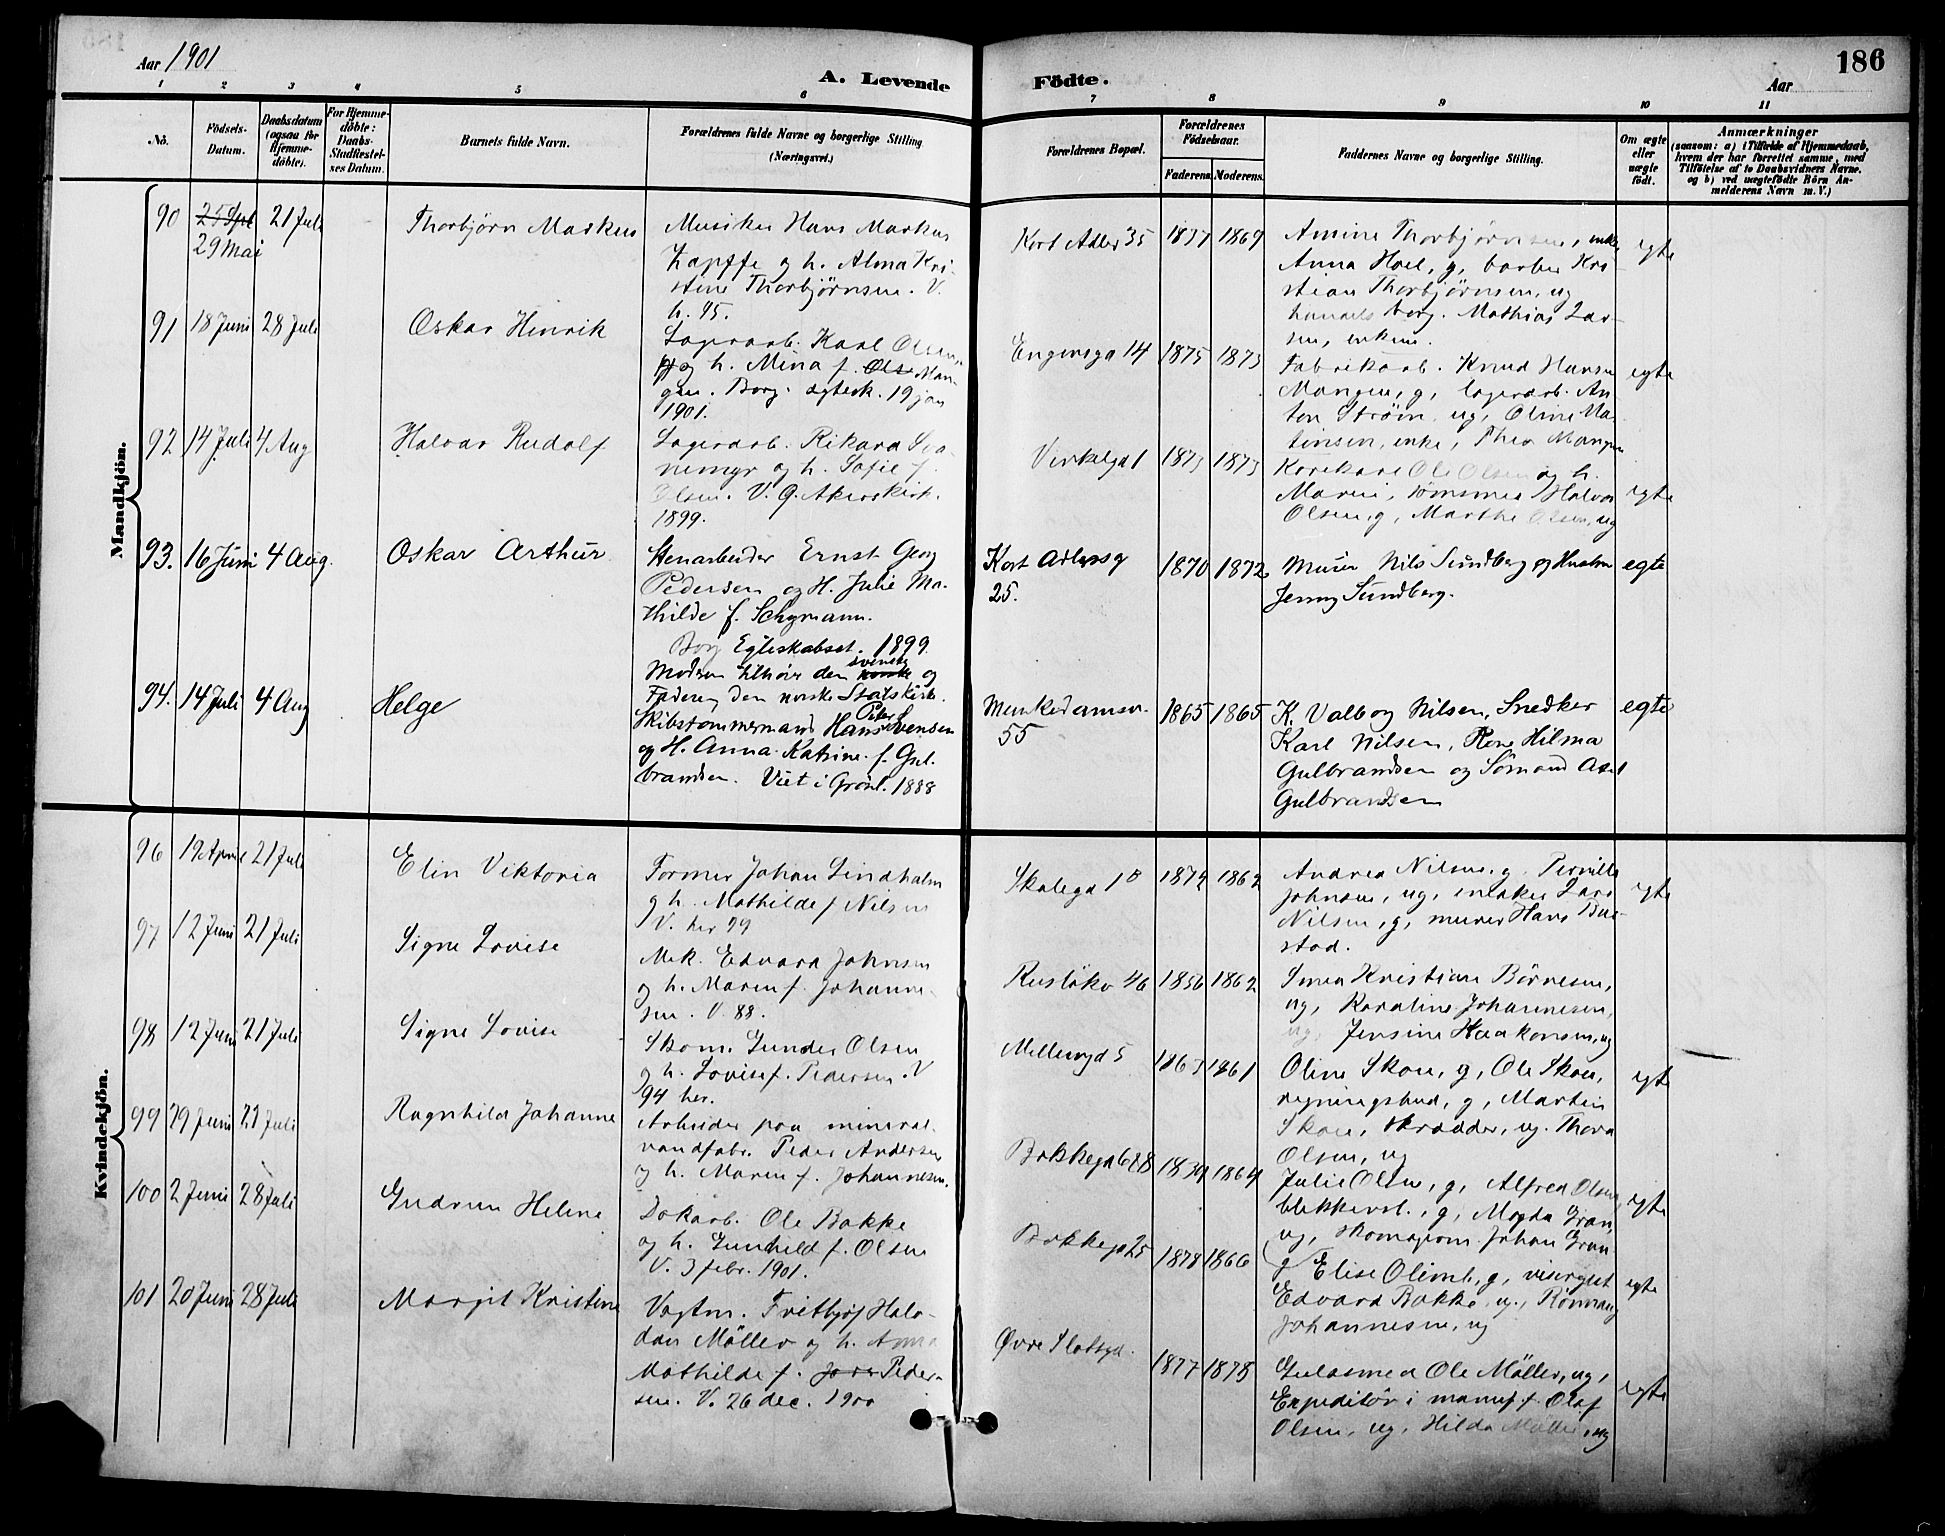 Aar 1901
A. Levende Födte.
Aar
186
1 2 3 4 5 6 7 8 9 10 11
No.
Födsels-Datum.
Daabsdatum (ogsaa for Hjemme-döbte).
For Hjemme-döbte: Daabs-Stadfæstel-ses Datum.
Barnets fulde Navn.
Forældrenes fulde Navne og borgerlige Stilling (Næringsvei.)
Forældrenes Bopæl.
Forældrenes Födselsaar.
Faderens. Moderens.
Faddernes Navne og borgerlige Stilling.
Om ægte eller uægte født.
Anmærkninger
(saasom: a) i Tilfælde af Hjemmedaab,
hvem der har forrettet samme, med
Tilföielse af to Daabsvidners Navne.
og b) ved uægtefödte Börn An-
melderens Navn m. V.)
Mandkjön.
90 25 Spt 29 Mai 21 Juli Thorbjörn Markus
Musiker Hans Markus
Zapffe og h. Alma Kri-
stine Thorbjörnsen. V.
h. 95.
Kort Adler 35 1857 1869
Amine Thorbjørnsen, enke,
Anna Hoel, g, barber Kri-
stian Thorbjørnsen, ug
handelsborg. Mathias Lar-
sen, enkem.
egte
91 18 Juni 28 Juli Oskar Henrik
Lagerarb. Karl Olsen
og h. Mina f. Ols Man-
gen. Borg. ægtesk. 19 jan
1901.
Engensga 14 1875 1873
Fabrikarb. Knud Hansen
Mangen, g, lagerarb. An
ton Strøm, ug, Oline Ma-
tinsen, enke, Thea Mangen
egte
92 14 Juli 4 Aug Halvar Rudolf
Lagerarb. Rikard Sva-
nemyr og h. Sofie f.
Olsen. V. G. Akerskirk.
1899.
Vinkelgd 1 1873 1873
Kørekarl Ole Olsen og h.
Maren, sömsmed Halvor
Olsen, g, Marthe Olsen, ug
egte
93. 16 Juni 4 Aug. Oskar Arthur
Stenarbeider Ernst Georg
Pedersen og H. Julie Ma-
thilde f. Schymann.
Borg Egteskabsst. 1899
Modern tilhörer den norske svenske og
Faderen den norske Statskirk.
Kort Adlersg
25.
1870 1872
Murer Nils Sundberg og Hustru
Jenny Sundberg.
egte
94. 14 Juli 4 Aug Helge
Skibstømmermand Hans Peter Svensen
og H. Anna Katrine f. Gul-
brandsen. Viet i Grönl. 1888
Munkedamsv.
55
1865 1865
K. Valborg Nilsen, Snedker
Karl Nilsen, Pene Hilma
Gulbrandsen og Sömand Axel
Gulbrandsen
egte
Kvindekjön.
96 19 April 21 Juli Elin Viktoria
Former Johan Lindholm
g h. Mathilde f Nilsen
V. her 99
Skalegd 1 B 1872 1862
Andrea Nilsen, g. Pernille
Johnsen, ug, Lars
Nilsen, g, murer Hans Bue-
stad.
egte
97 12 Juni 21 Juli Signe Lovise
Mek. Edvard Johnsen
og h. Maren f. Johanne-
sen. V. 88.
Rusløkv 46 1856 1862
Smed Kristian Børnesen,
ug, Karoline Johannesen,
ug, Jensine Haakonsen, ug
98 12 Juni 21 Juli Signe Lovise
Skom. Gunder Olsen
og h. Lovise f. Pedersen. V
94 her.
Mellemgd 5 1863 1861
Oline Skou, g, Ole Skou,
regningsbud, g, Martin
Skou, skrædder, ug. Thora
Olsen, ug
egte
99 29 Juni 21 Juli Ragnhild Johanne
Arbeider paa mineral-
vandfabr. Peder Andersen
og h. Maren f. Johannesen.
Bakkegd 6 1864
Julie Olsen, g, Alfred Olsen,
blikkensl., g, Magda Gran,
ug, skomagerm. Johan Gran
g
egte
100 2 Juni 28 Juli Gudrun Helene
Dokarb. Ole Bakke
og h. Gunhild f. Olsen
V. 3 febr. 1901.
Bakkegd 25 1878 1866
Elise Olimb, g, visergut
Edvard Bakke, ug,
Johannesen, ug
egte
101 20 Juni 28 Juli Margit Kristine
Vagtm. Fritbjof Halv-
dan Möller og h. Anna
Mathilde f. Peder-
sen. V. 26 dec. 1900
Øvre Slotsgd. 1877 1878
Guldsmed Ole Möller, ug,
Expeditör i manuf. f. Olaf
Olsen, ug, Hilda Möller, ug
egte